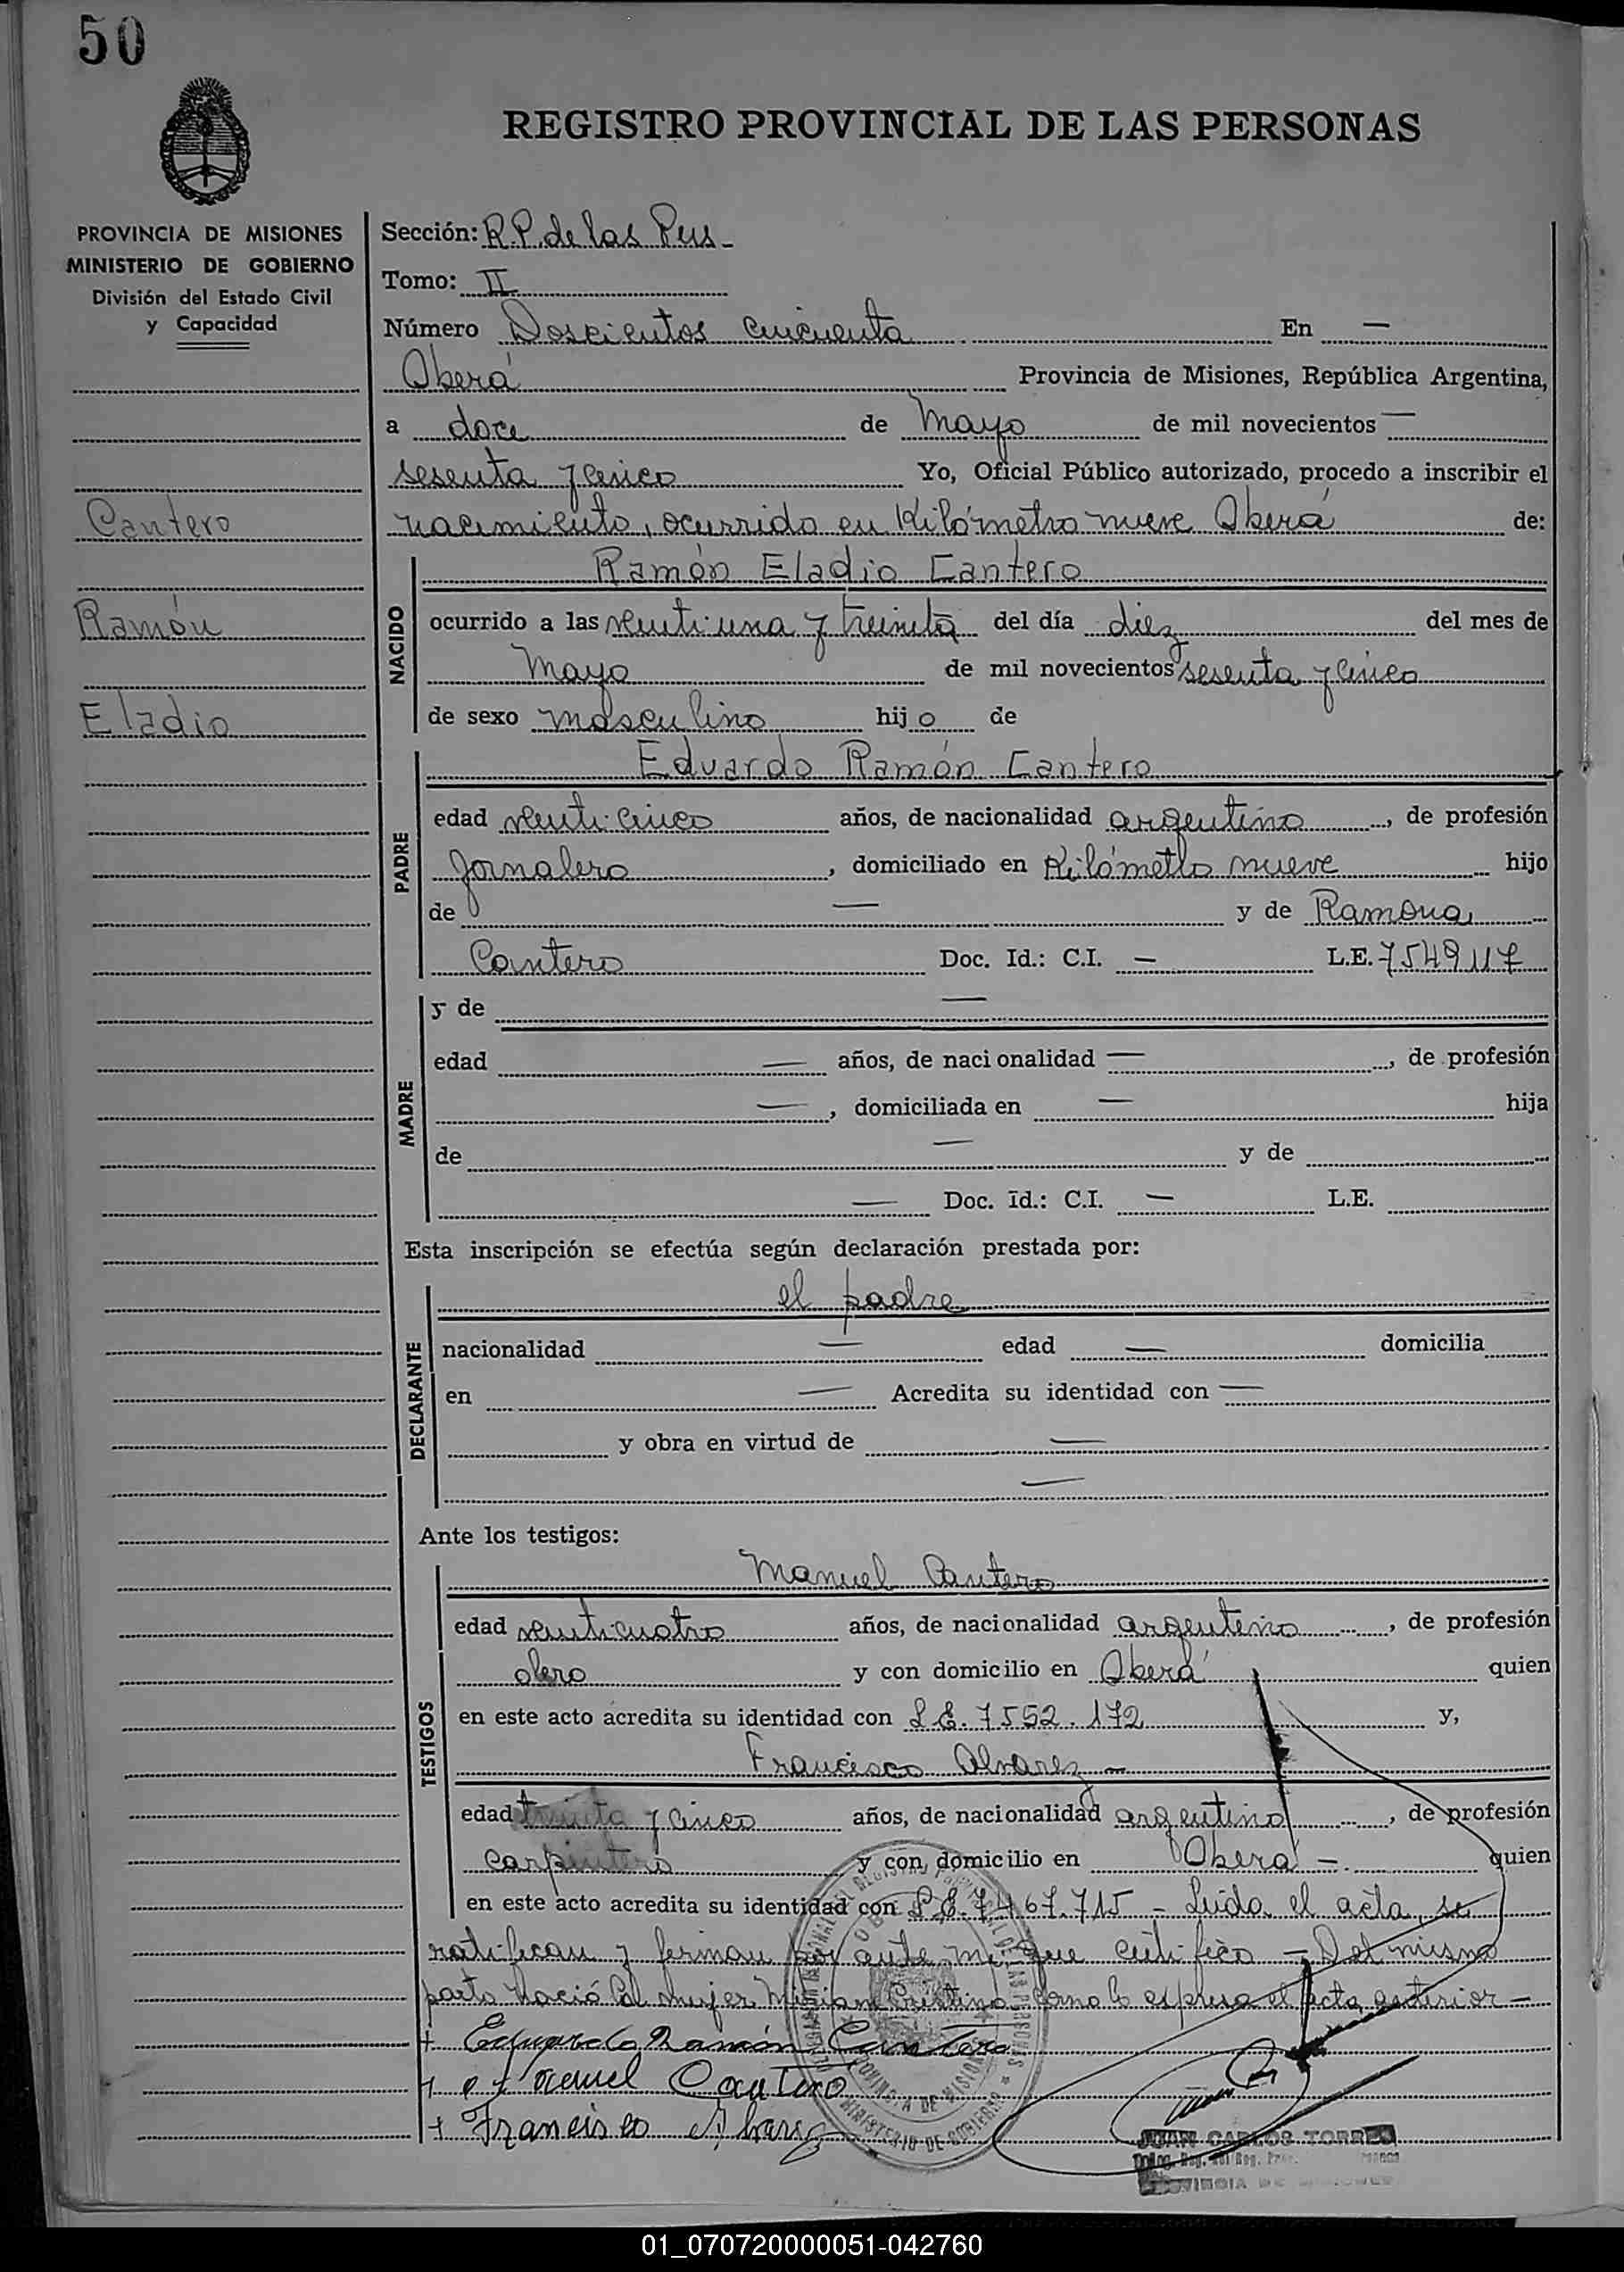 50
REGISTRO PROVINCIAL DE LAS PERSONAS
PROVINCIA DE MISIONES
MINISTERIO DE GOBIERNO
División del Estado Civil
y Capacidad
Cantero
Ramón
Eladio
Sección: R.P. de las Pers -
Tomo: II
Número Doscientos cincuenta En —
Oberá Provincia de Misiones, República Argentina,
a doce de Mayo de mil novecientos —
sesenta y cinco Yo, Oficial Público autorizado, procedo a inscribir el
nacimiento, ocurrido en Kilómetro nueve Oberá de:
NACIDO
Ramón Eladio Cantero
ocurrido a las veinti una y treinta del día diez del mes de
Mayo de mil novecientos sesenta y cinco
de sexo masculino hijo de
PADRE
Eduardo Ramón Cantero
edad veinti cinco años, de nacionalidad argentino, de profesión
Jornalero, domiciliado en Kilómetro nueve hijo
de — y de Ramona
Cantero Doc. Id.: C.I. — L.E. 7549117
MADRE
y de —
edad — años, de nacionalidad —, de profesión
—, domiciliada en — hija
de — y de
— Doc. Id.: C.I. — L.E.
Esta inscripción se efectúa según declaración prestada por:
DECLARANTE
el padre
nacionalidad — edad — domicilia
en — Acredita su identidad con —
y obra en virtud de —
—
Ante los testigos:
TESTIGOS
Manuel Cantero
edad veinticuatro años, de nacionalidad argentino, de profesión
olero y con domicilio en Oberá quien
en este acto acredita su identidad con L.E. 7552.172 y,
Francisco Alvarez —
edad treinta y cinco años, de nacionalidad argentino, de profesión
carpintero y con domicilio en Oberá —. quien
en este acto acredita su identidad con L.E. 7467.715 - Leida el acta, se
ratifican y firman por ante mi que certifico - Del mismo
parto nació la mujer Miriam Cristina como lo expresa el acta anterior -
+ Eduardo Ramón Cantero
+ Manuel Cantero
+ Francisco Alvarez
MINISTERIO DE GOBIERNO
JUAN CARLOS TORRES
PROVINCIA DE MISIONES
01_070720000051-042760